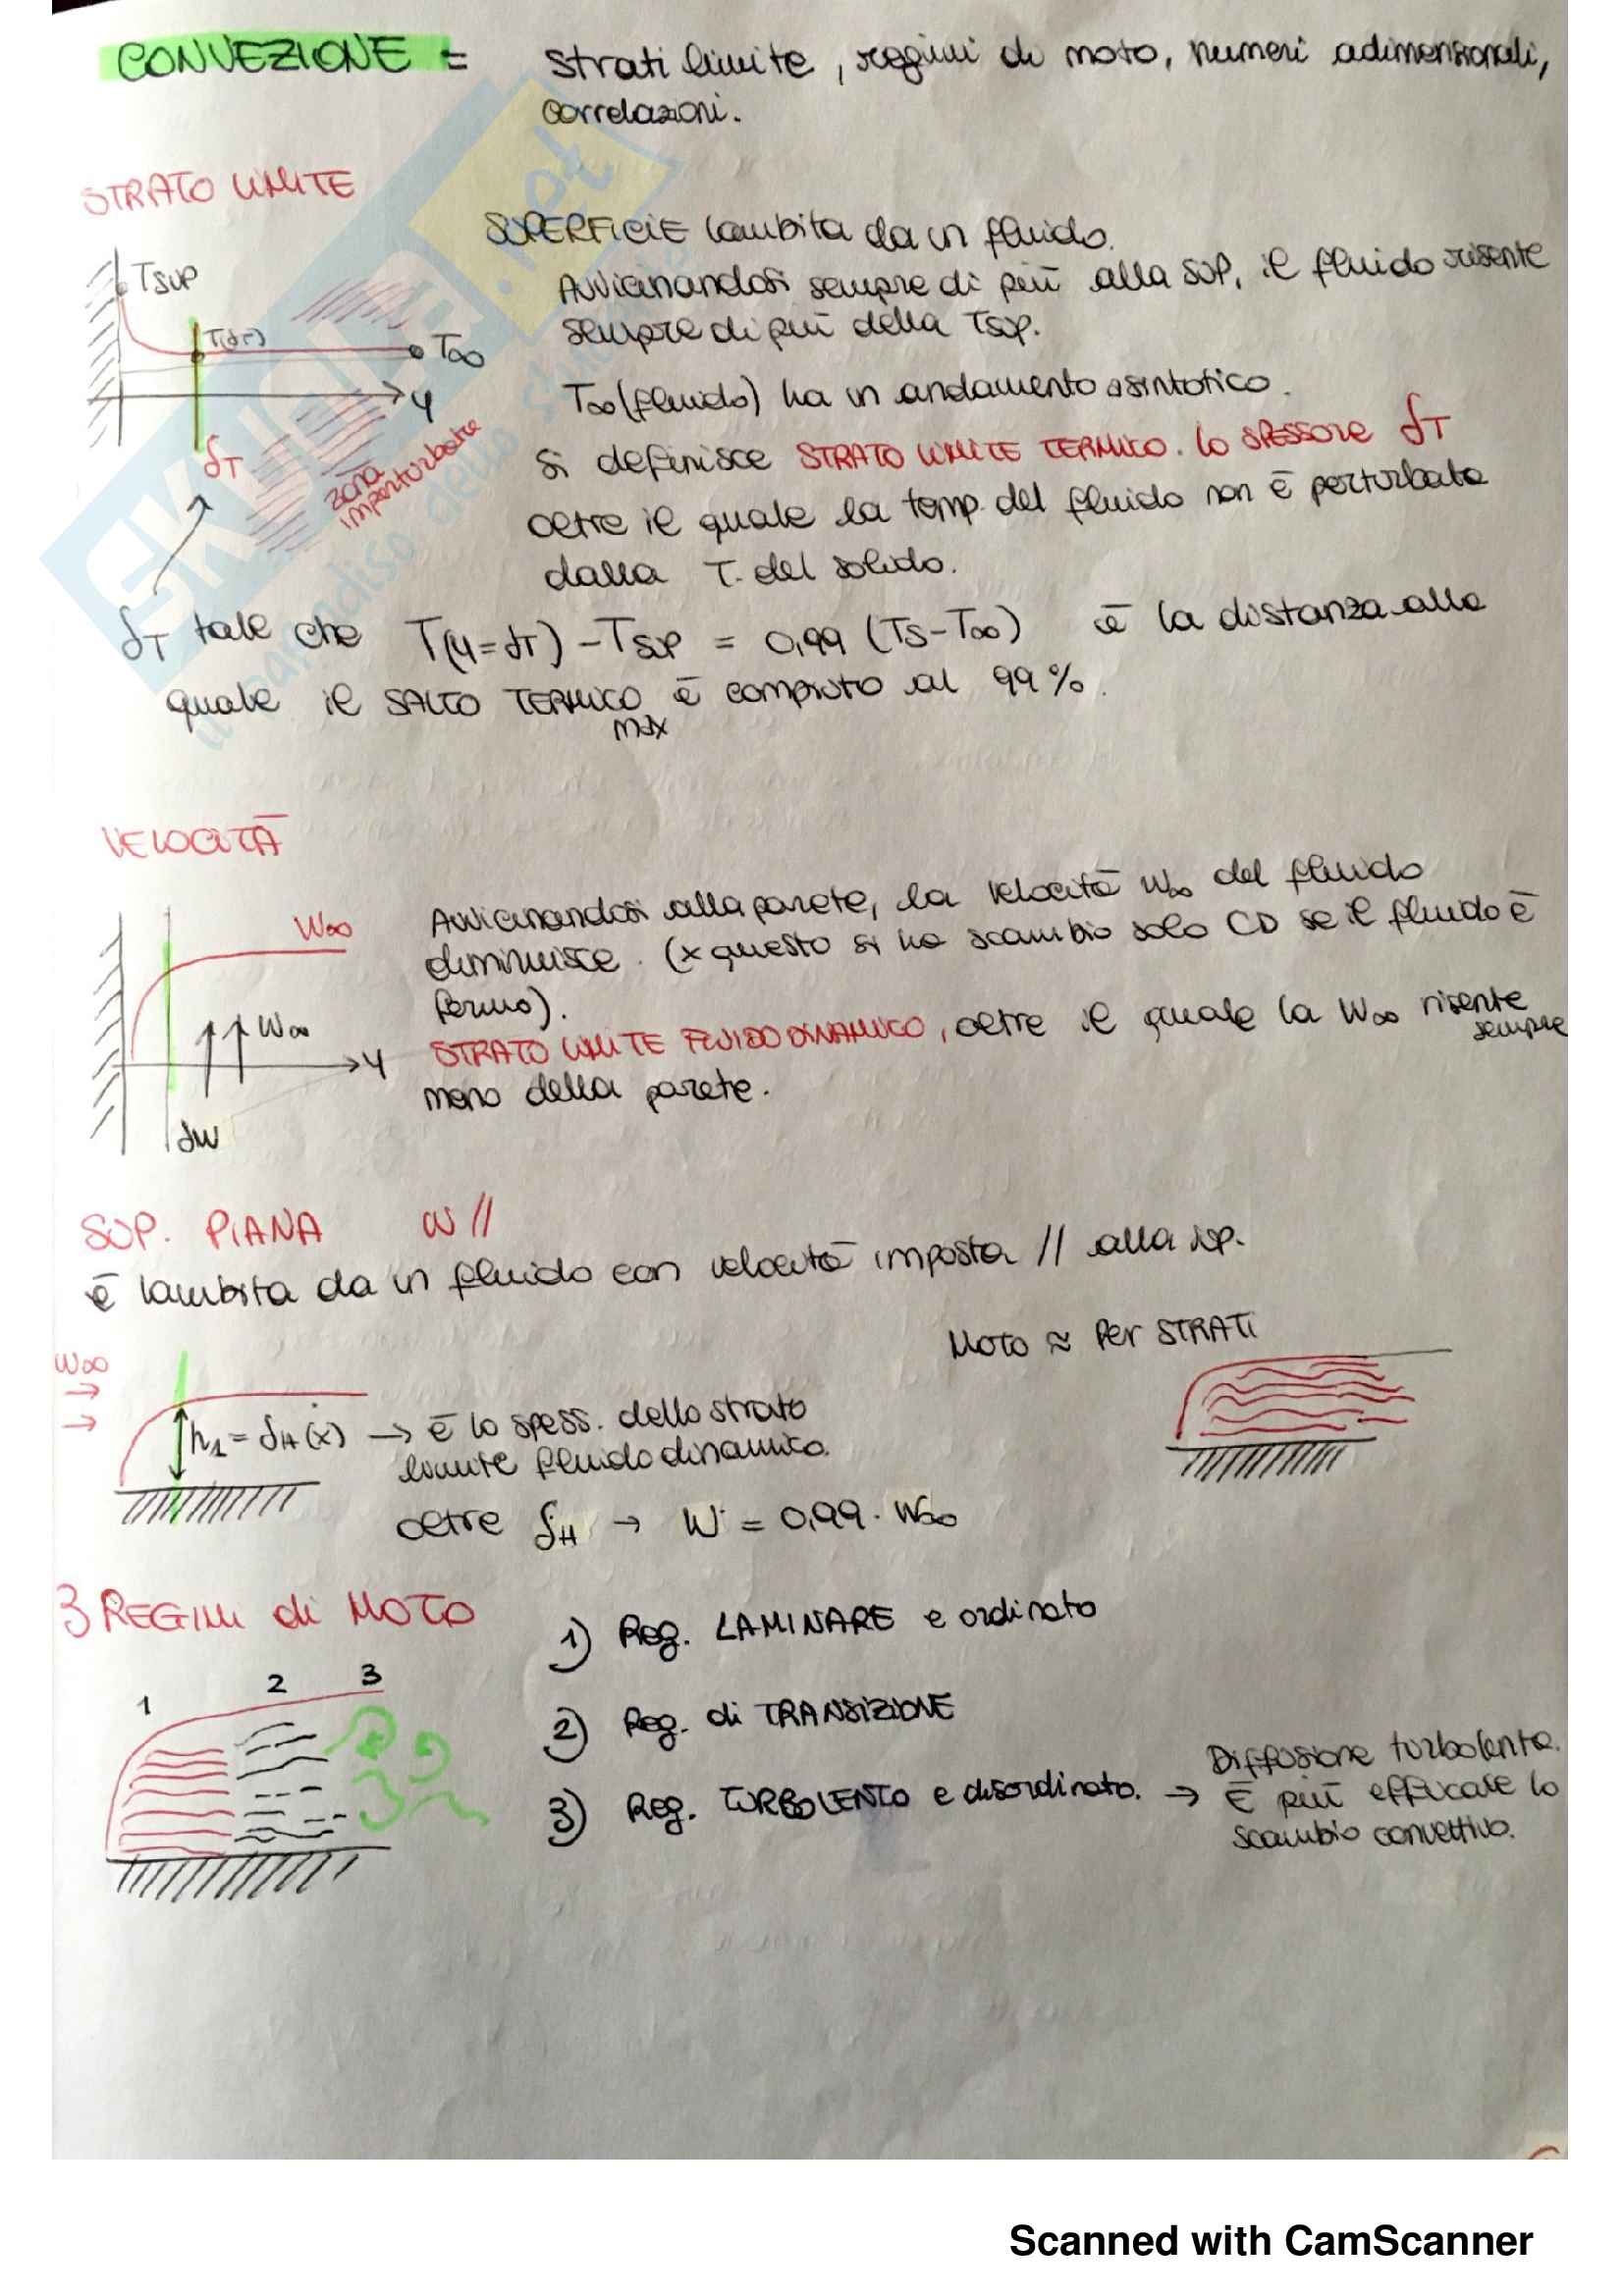 CONVEZIONE = strati limite, regimi di moto, numeri adimensionali,
correlazioni.
STRATO LIMITE
SUPERFICIE lambita da un fluido.
Avvicinandosi sempre di più alla sup, il fluido risente
sempre di più della Tsup.
Tsup
T(δT)
T∞
y
δT
zona
imperturbata
T∞ (fluido) ha un andamento asintotico.
si definisce STRATO LIMITE TERMICO. lo SPESSORE δT
oltre il quale la temp. del fluido non è perturbata
dalla T. del solido.
δT tale che T(y=δT) - Tsup = 0,99 (Ts-T∞) è la distanza alla
quale il SALTO TERMICO è compiuto al 99%.
max
VELOCITÀ
Avvicinandosi alla parete, la velocità w∞ del fluido
diminuisce. (x questo si ha scambio solo CD se il fluido è
fermo).
STRATO LIMITE FLUIDODINAMICO, oltre il quale la W∞ risente
sempre
meno della parete.
W∞
W∞
y
δW
SUP. PIANA W //
è lambita da un fluido con velocità imposta // alla sup.
Moto ≈ Per STRATI
W∞
h1 = δH (x) → è lo spess. dello strato
limite fluidodinamico.
oltre δH → W = 0,99 · W∞
3 REGIMI di MOTO
1) Reg. LAMINARE e ordinato
1 2 3
2) Reg. di TRANSIZIONE
3) Reg. TURBOLENTO e disordinato. → Diffusione turbolenta.
È più efficace lo
scambio convettivo.
SKUOLA.net
Scanned with CamScanner